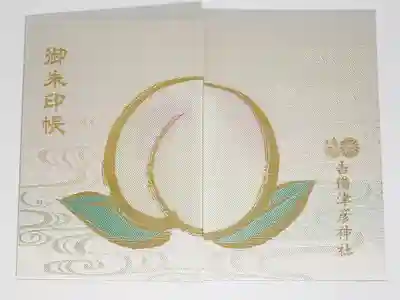 御朱印帳
吉備津彦神社